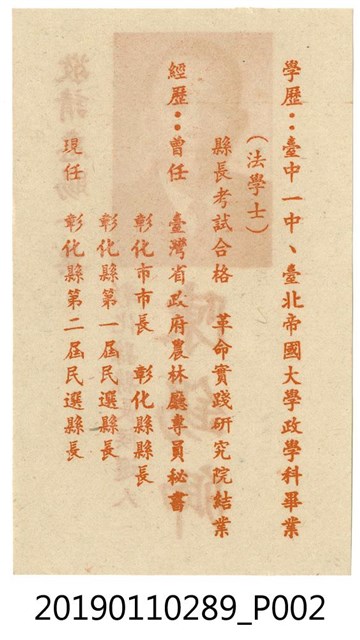 學歷：臺中一中、臺北帝國大學政學科畢業
（法學士）
縣長考試合格　革命實踐研究院結業
經歷：曾任　臺灣省政府農林廳專員秘書
彰化市市長　彰化縣縣長
彰化縣第一屆民選縣長
現任　彰化縣第二屆民選縣長
20190110289_P002